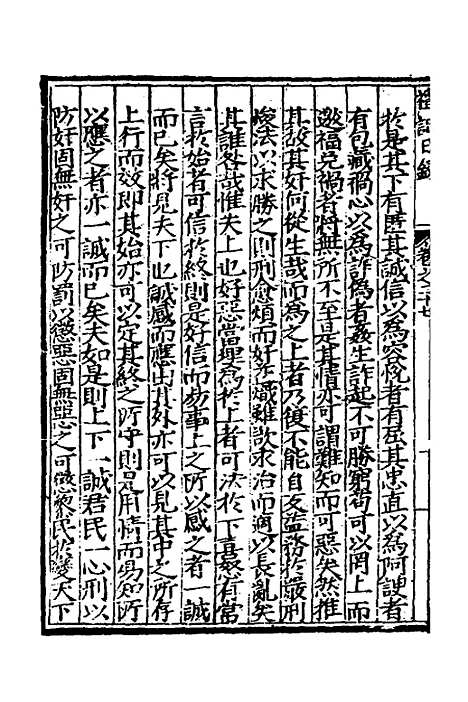 於是其下有匿其誠信以為容悅者有歪其忠直以為阿諛者
有包藏禍心以為詐偽者姦生詐起不可勝窮苟可以罔上而
邀福免禍者將無所不至是其情亦可謂難知而可惡矣然推
其故其奸何從生哉而為之上者乃復不能自反益務於嚴刑
峻法以求勝之則刑愈煩而奸亦熾雖欲求治而適以長亂矣
其誰咎哉惟夫上也好惡當理為於上者可法於下喜怒有常
言於始者可信於終則是好信而勿事上之所以感之者一誠
而已矣將見夫下也誠感而應由其外亦可以見其中之所存
上行而效即其始亦可以定其終之所守則是用情而易知所
以應之者亦一誠而已矣夫如是則上下一誠君民一心刑以
防奸固無奸之可防罰以懲惡固無惡之可懲蒸民於變天下